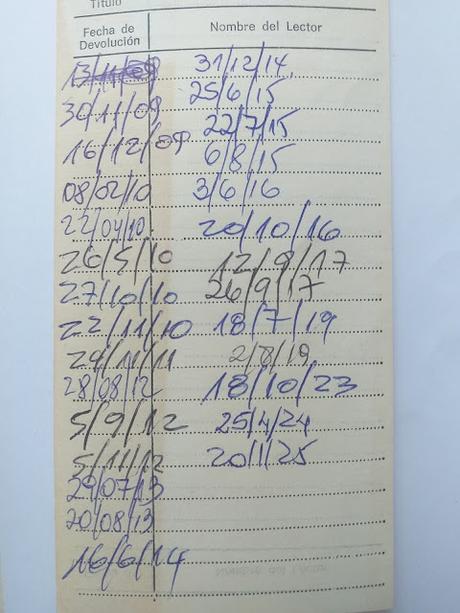 Título
Fecha de Devolución
Nombre del Lector
13/11/09
30/11/09
16/12/09
08/02/10
22/04/10
26/5/10
27/10/10
22/11/10
29/11/11
28/08/12
5/9/12
5/11/12
29/07/13
20/08/13
16/6/14
31/12/14
25/6/15
22/7/15
6/8/15
3/6/16
20/10/16
12/9/17
26/9/17
18/7/19
2/8/19
18/10/23
25/4/24
20/1/25